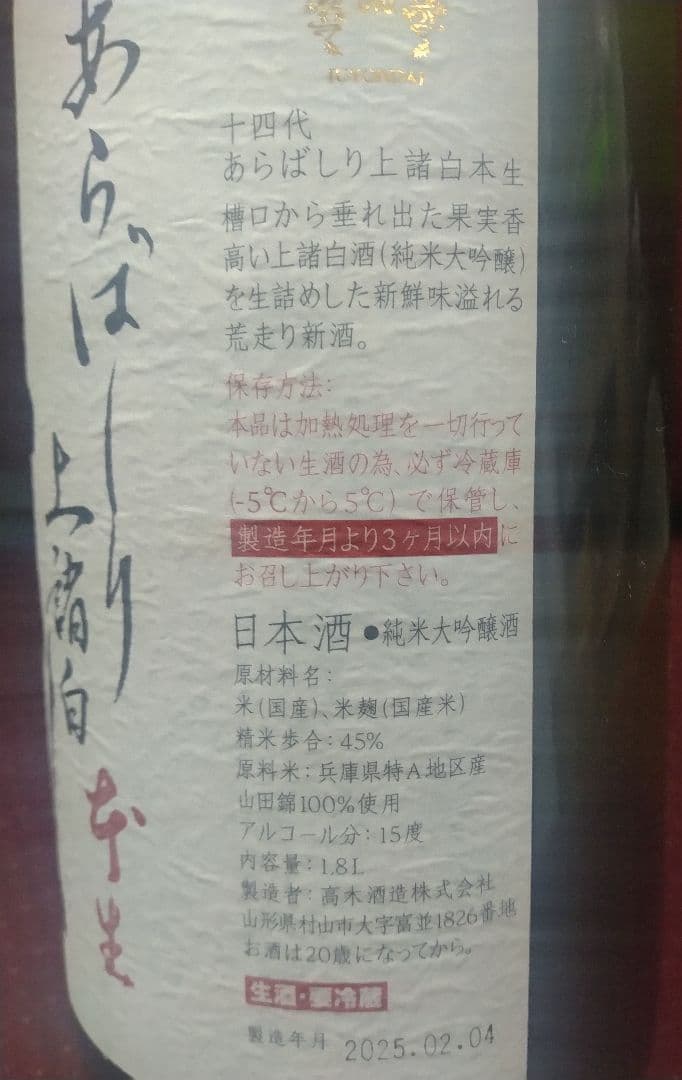 あらばしり 上諸白 本生
十四代
あらばしり上諸白本生
槽口から垂れ出た果実香
高い上諸白酒(純米大吟醸)
を生詰めした新鮮味溢れる
荒走り新酒。
保存方法:
本品は加熱処理を一切行って
いない生酒の為、必ず冷蔵庫
(-5℃から5℃)で保管し、
製造年月より3ヶ月以内に
お召し上がり下さい。
日本酒●純米大吟醸酒
原材料名:
米(国産)、米麹(国産米)
精米歩合:45%
原料米:兵庫県特A地区産
山田錦100%使用
アルコール分:15度
内容量:1.8L
製造者:高木酒造株式会社
山形県村山市大字富並1826番地
お酒は20歳になってから。
生酒・要冷蔵
製造年月 2025.02.04